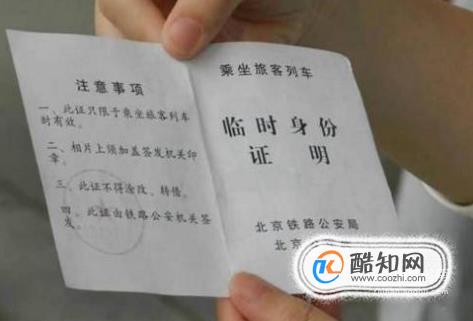 注意事项
一、此证只限于乘坐旅客列车
时有效。
二、相片上须加盖签发机关印
章。
三、此证不得涂改、转借。
四、此证由铁路公安机关签
发。
乘坐旅客列车
临时身份
证明
北京铁路公安局
北京
酷知网
www.coozhi.com